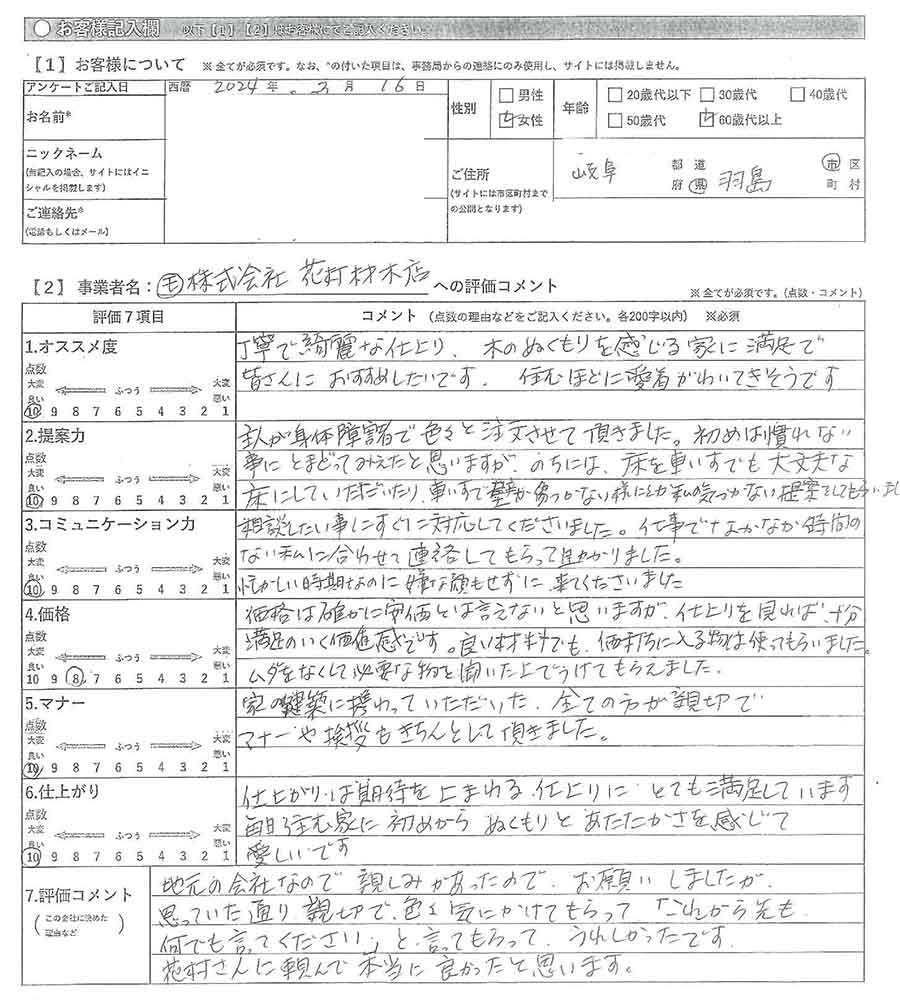 ○ お客様記入欄 以下【1】【2】はお客様にてご記入ください。
【1】お客様について ※全てが必須です。なお、*の付いた項目は、事務局からの連絡にのみ使用し、サイトには掲載しません。
アンケートご記入日 西暦 2024年 月16日
お名前*
性別 □男性 ☑女性
年齢 □20歳代以下 □30歳代 □40歳代
□50歳代 ☑60歳代以上
ニックネーム
(無記入の場合、サイトにはイニシャルを掲載します)
ご連絡先*
(電話もしくはメール)
ご住所
(サイトには市区町村までの公開となります)
岐阜 都道府県 羽島 市区町村
【2】事業者名:㊟株式会社 花村材木店 への評価コメント
※全てが必須です。(点数・コメント)
評価7項目 コメント (点数の理由などをご記入ください。各200字以内) ※必須
1.オススメ度
点数
大変良い ふつう 大変悪い
10 9 8 7 6 5 4 3 2 1
丁寧で綺麗な仕上り、木のぬくもりを感じる家に満足で
皆さんにおすすめしたいです。住むほどに愛着がわいてきそうです
2.提案力
点数
大変良い ふつう 大変悪い
10 9 8 7 6 5 4 3 2 1
主人が身体障害者で色々と注文させて頂きました。初めは慣れない
事にとまどってみえたと思いますが、のちには、床を車いすでも大丈夫な
床にしていただいたり、車いすで壁が傷つかない様にとか私の気づかない提案をしてもらいまし
3.コミュニケーション力
点数
大変良い ふつう 大変悪い
10 9 8 7 6 5 4 3 2 1
相談したい事にすぐに対応してくださいました。仕事でなかなか時間の
ない私に合わせて連絡してもらって助かりました。
忙がしい時期なのに嫌な顔もせずに来てくださいました
4.価格
点数
大変良い ふつう 大変悪い
10 9 8 7 6 5 4 3 2 1
価格は確かに安価とは言えないと思いますが、仕上りを見れば、十分
満足のいく価値感です。良い材料でも、価格に入る物は使ってもらいました。
ムダをなくして必要な物を聞いた上でうけてもらえました。
5.マナー
点数
大変良い ふつう 大変悪い
10 9 8 7 6 5 4 3 2 1
家の建築に携わっていただいた、全ての方が親切で
マナーや挨拶もきちんとして頂きました。
6.仕上がり
点数
大変良い ふつう 大変悪い
10 9 8 7 6 5 4 3 2 1
仕上がりは期待を上まわる仕上りにとても満足しています
毎日住む家に初めからぬくもりとあたたかさを感じて
愛しいです
7.評価コメント
(この会社に決めた理由など)
地元の会社なので親しみがあったので、お願いしましたが、
思っていた通り、親切で、色々気にかけてもらって「これから先も
何でも言ってください」と言ってもらって、うれしかったです。
花村さんに頼んで本当に良かったと思います。